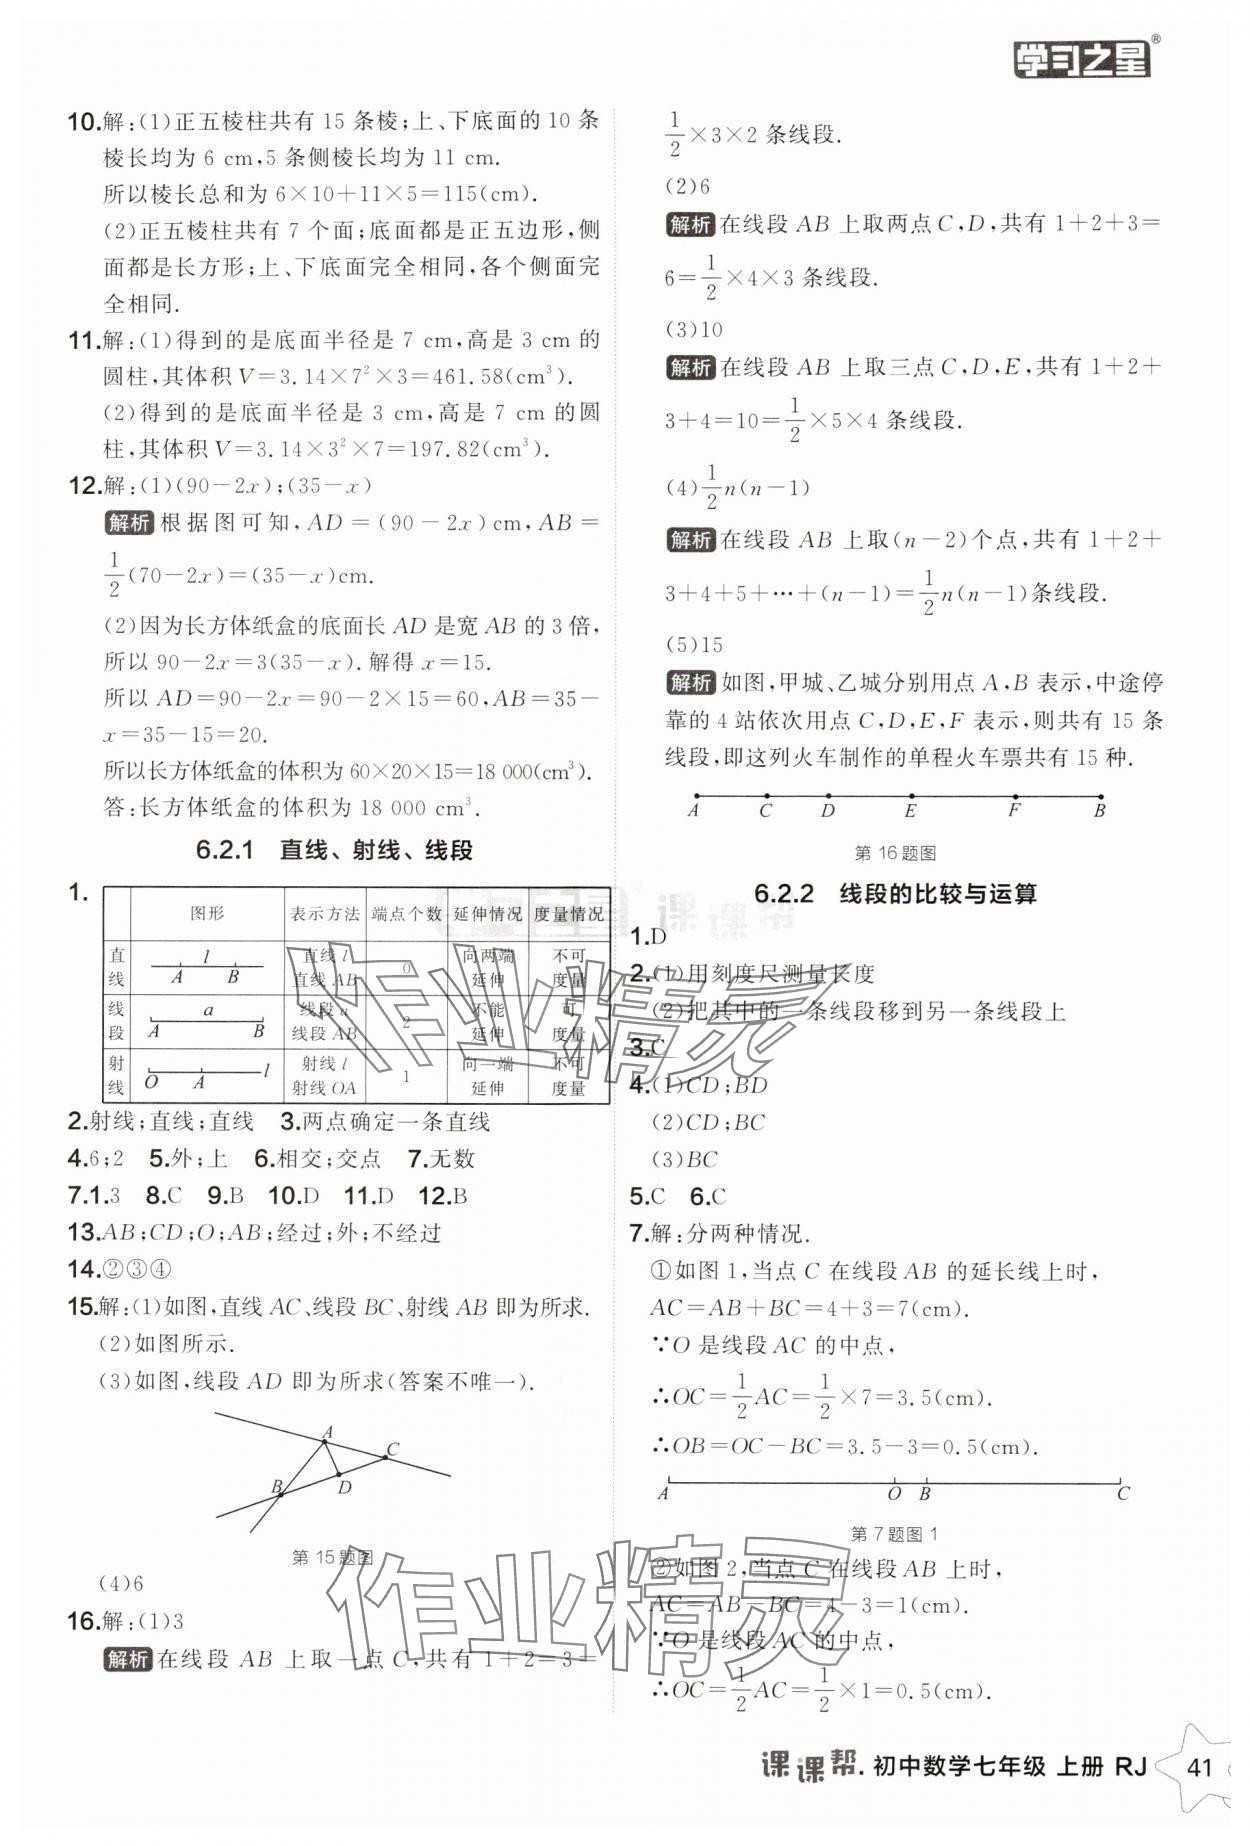 学习之星®
10.解:(1)正五棱柱共有 15 条棱;上、下底面的 10 条
棱长均为 6 cm,5 条侧棱长均为 11 cm.
所以棱长总和为 6×10+11×5=115(cm).
(2)正五棱柱共有 7 个面;底面都是正五边形,侧
面都是长方形;上、下底面完全相同,各个侧面完
全相同.
11.解:(1)得到的是底面半径是 7 cm,高是 3 cm 的
圆柱,其体积 V=3.14×7²×3=461.58(cm³).
(2)得到的是底面半径是 3 cm,高是 7 cm 的圆
柱,其体积 V=3.14×3²×7=197.82(cm³).
12.解:(1)(90-2x);(35-x)
解析 根据图可知,AD=(90-2x)cm,AB=
1/2(70-2x)=(35-x)cm.
(2)因为长方体纸盒的底面长 AD 是宽 AB 的 3 倍,
所以 90-2x=3(35-x).解得 x=15.
所以 AD=90-2x=90-2×15=60,AB=35-
x=35-15=20.
所以长方体纸盒的体积为 60×20×15=18 000(cm³).
答:长方体纸盒的体积为 18 000 cm³.
6.2.1 直线、射线、线段
1.
图形 表示方法 端点个数 延伸情况 度量情况
直线 A B l 直线 l 直线 AB 0 向两端延伸 不可度量
线段 A B a 线段 a 线段 AB 2 不能延伸 可度量
射线 O A l 射线 l 射线 OA 1 向一端延伸 不可度量
2.射线;直线;直线 3.两点确定一条直线
4.6;2 5.外;上 6.相交;交点 7.无数
7.1.3 8.C 9.B 10.D 11.D 12.B
13.AB;CD;O;AB;经过;外;不经过
14.②③④
15.解:(1)如图,直线 AC、线段 BC、射线 AB 即为所求.
(2)如图所示.
(3)如图,线段 AD 即为所求(答案不唯一).
A
C
B
D
第 15题图
(4)6
16.解:(1)3
解析 在线段 AB 上取一点 C,共有 1+2=3=
1/2×3×2 条线段.
(2)6
解析 在线段 AB 上取两点 C,D,共有 1+2+3=
6=1/2×4×3 条线段.
(3)10
解析 在线段 AB 上取三点 C,D,E,共有 1+2+
3+4=10=1/2×5×4 条线段.
(4)1/2n(n-1)
解析 在线段 AB 上取(n-2)个点,共有 1+2+
3+4+5+…+(n-1)=1/2n(n-1)条线段.
(5)15
解析 如图,甲城、乙城分别用点 A,B 表示,中途停
靠的 4 站依次用点 C,D,E,F 表示,则共有 15 条
线段,即这列火车制作的单程火车票共有 15 种.
A C D E F B
第 16题图
6.2.2 线段的比较与运算
课课帮
1.D
2.(1)用刻度尺测量长度
(2)把其中的一条线段移到另一条线段上
3.C
4.(1)CD;BD
(2)CD;BC
(3)BC
5.C 6.C
7.解:分两种情况.
①如图 1,当点 C 在线段 AB 的延长线上时,
AC=AB+BC=4+3=7(cm).
∵O 是线段 AC 的中点,
∴OC=1/2AC=1/2×7=3.5(cm).
∴OB=OC-BC=3.5-3=0.5(cm).
A O B C
第 7题图 1
②如图 2,当点 C 在线段 AB 上时,
AC=AB-BC=4-3=1(cm).
∵O 是线段 AC 的中点,
∴OC=1/2AC=1/2×1=0.5(cm).
作业精灵
作业精灵
课课帮.初中数学七年级 上册 RJ 41